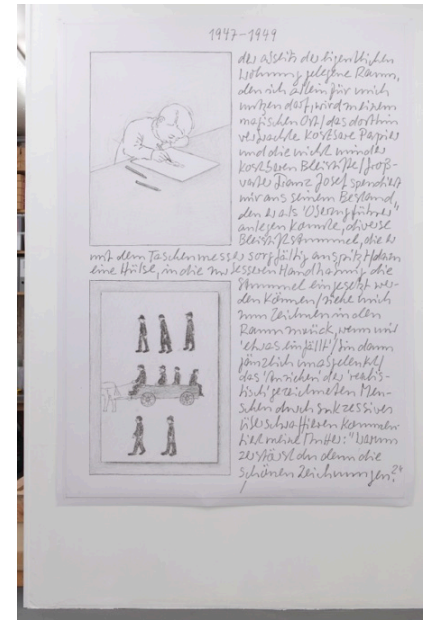 1947-1949
der abseits der eigentlichen
Wohnung gelegene Raum,
den ich allein für mich
nutzen darf, wird zu einem
magischen Ort/das dorthin
verbrachte kostbare Papier
und die nicht minder
kostbaren Bleistifte/Groß-
vater Franz Josef spendiert
mir aus seinem Bestand,
den er als
anlegen konnte, diverse
Bleistiftstummel, die er
mit dem Taschenmesser sorgfältig anspitzt/dazu
eine Hülse, in die zur besseren Handhabung die
Stummel eingesetzt wer-
den können/ziehe mich
zum Zeichnen in den
Raum zurück, wenn mir
'etwas einfällt'/bin dann
gänzlich unabgelenkt/
das 'Anziehen' der realis-
tisch gezeichneten Men-
schen durch sukzessives
kommen-
tiert meine Mutter: "Warum
zerstörst du denn die
schönen Zeichnungen?"